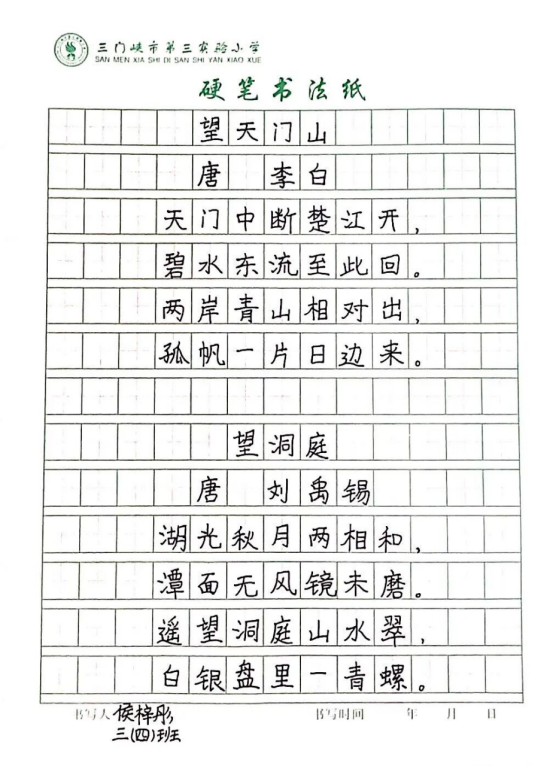 三门峡市第三实验小学
SAN MEN XIA SHI DI SAN SHI YAN XIAO XUE
硬笔书法纸
望天门山
唐 李白
天门中断楚江开，
碧水东流至此回。
两岸青山相对出，
孤帆一片日边来。
望洞庭
唐 刘禹锡
湖光秋月两相和，
潭面无风镜未磨。
遥望洞庭山水翠，
白银盘里一青螺。
书写人 侯梓彤 书写时间 年 月 日
三(四)班